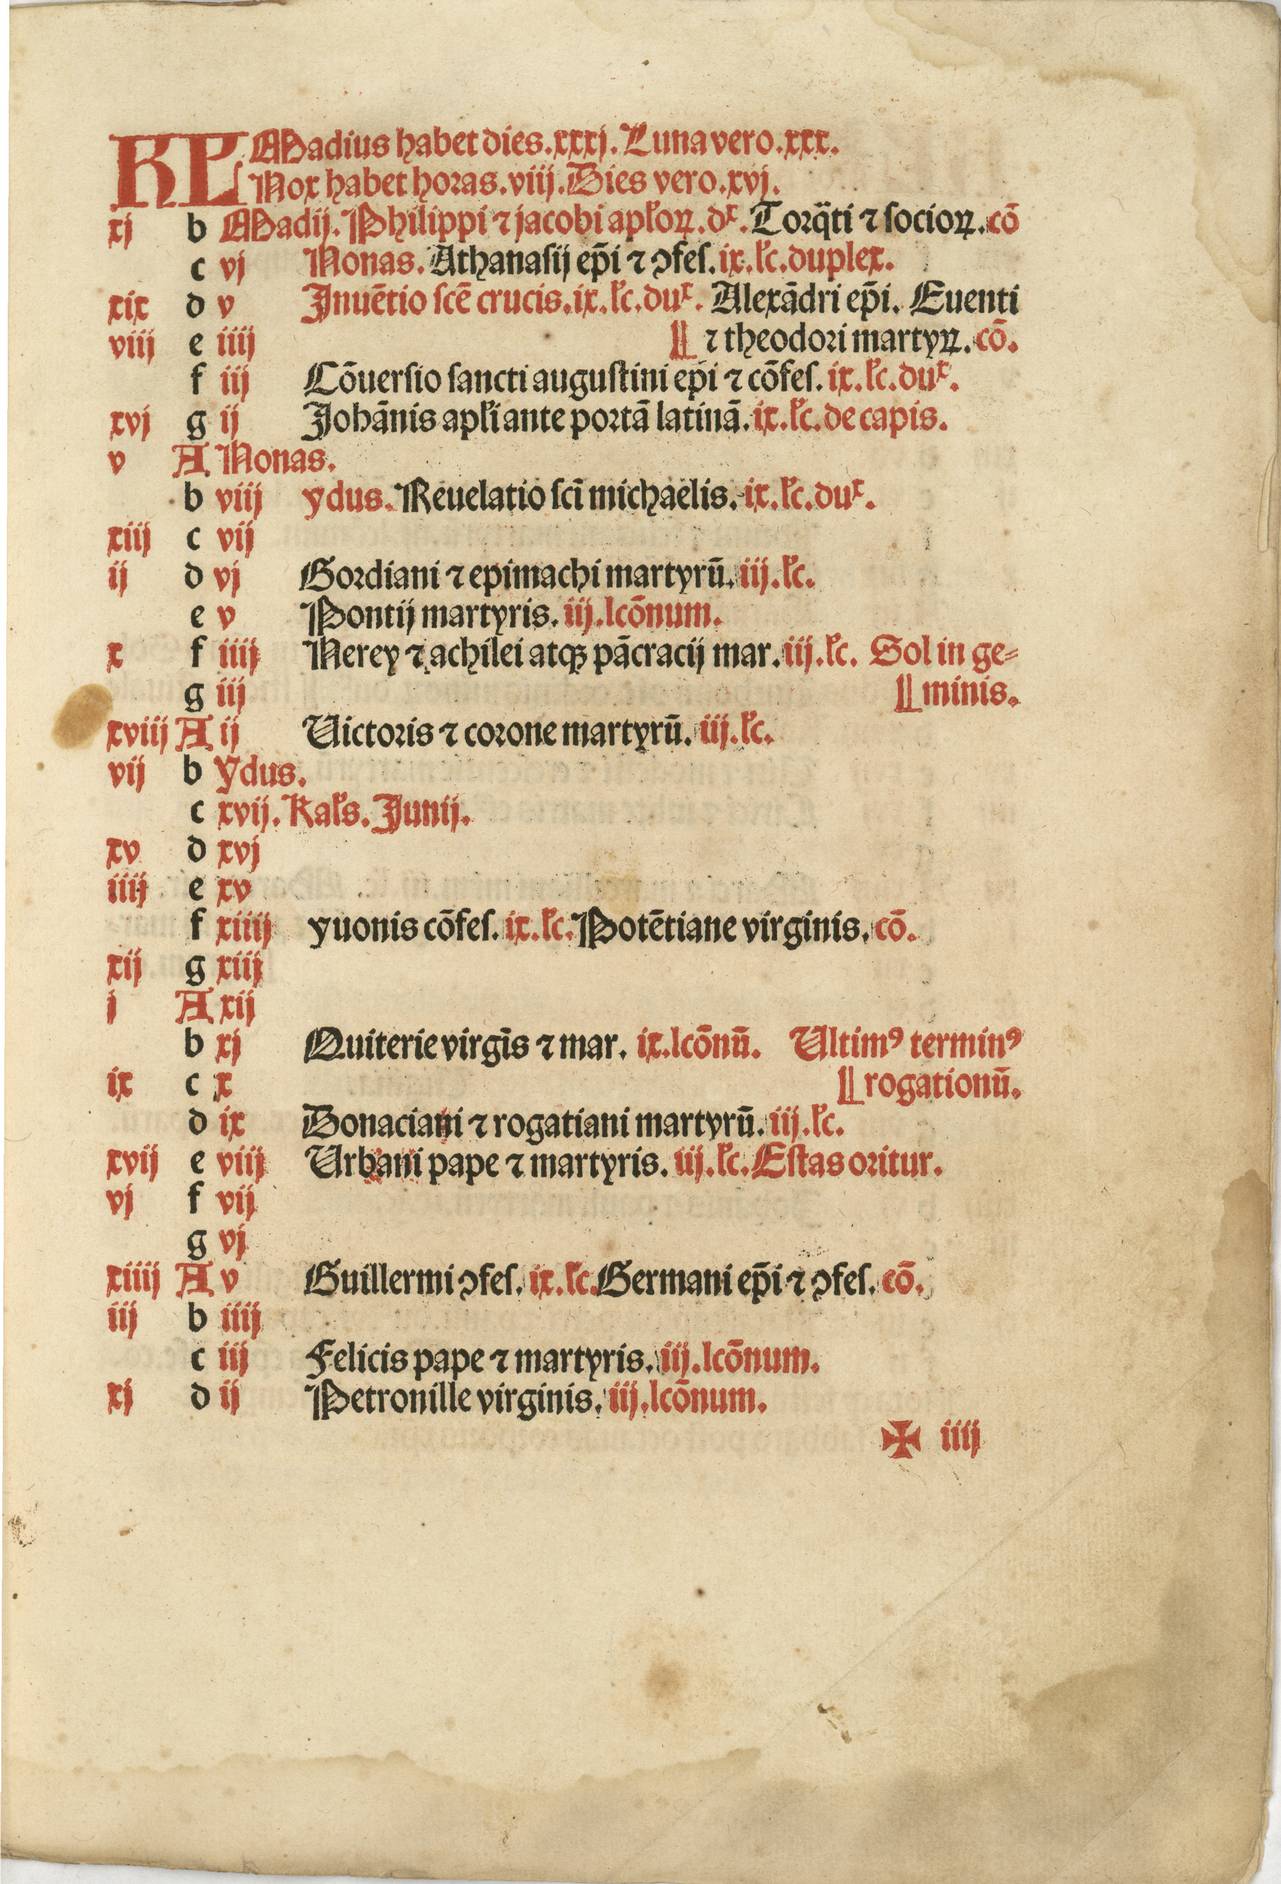 KL Madius habet dies.xxxj. Luna vero.xxx.
Nox habet horas.viij.Dies vero.xvj.
xj b Madij. Philippi ⁊ jacobi apl'oꝝ.dx. Torq̄ti ⁊ socioꝝ.cō
c vj Nonas. Athanasij ep̄i ⁊ ɔfes.ix.lc̄.duplex.
xix d v Inuētio scē crucis.ix.lc̄.dux. Alexādri ep̄i. Euenti
viij e iiij ⁋ ⁊ theodori martyꝝ.cō.
f iij Cōuersio sancti augustini ep̄i ⁊ cōfes. ix.lc̄.dux.
xvj g ij Johānis apl'i ante portā latinā.ix.lc̄.de capis.
v A Nonas.
b viij ydus. Reuelatio scī michaelis. ix.lc̄.dux.
xiij c vij
ij d vj Gordiani ⁊ epimachi martyrū.iij.lc̄.
e v Pontij martyris. iij.lcōnum.
x f iiij Nerey ⁊ achilei atqꝫ pācracij mar.iij.lc̄. Sol in ge⸗
g iij ⁋ minis.
xviij A ij Uictoris ⁊ corone martyrū. iij.lc̄.
vij b ydus.
c xvij. Kal's. Junij.
xv d xvj
iiij e xv
f xiiij yuonis cōfes. ix.lc̄. Potētiane virginis. cō.
xij g xiij
j A xij
b xj Quiterie virgīs ⁊ mar. ix.lcōnū. Ultimꝰ terminꝰ
ix c x ⁋ rogationū.
d ix Donaciani ⁊ rogatiani martyrū.iij.lc̄.
xvij e viij Urbani pape ⁊ martyris. iij.lc̄. Estas oritur.
vj f vij
g vj
xiiij A v Guillermi ɔfes. ix.lc̄. Germani ep̄i ⁊ ɔfes. cō.
iij b iiij
c iij Felicis pape ⁊ martyris. iij.lcōnum.
xj d ij Petronille virginis. iij.lcōnum.
✠ iiij